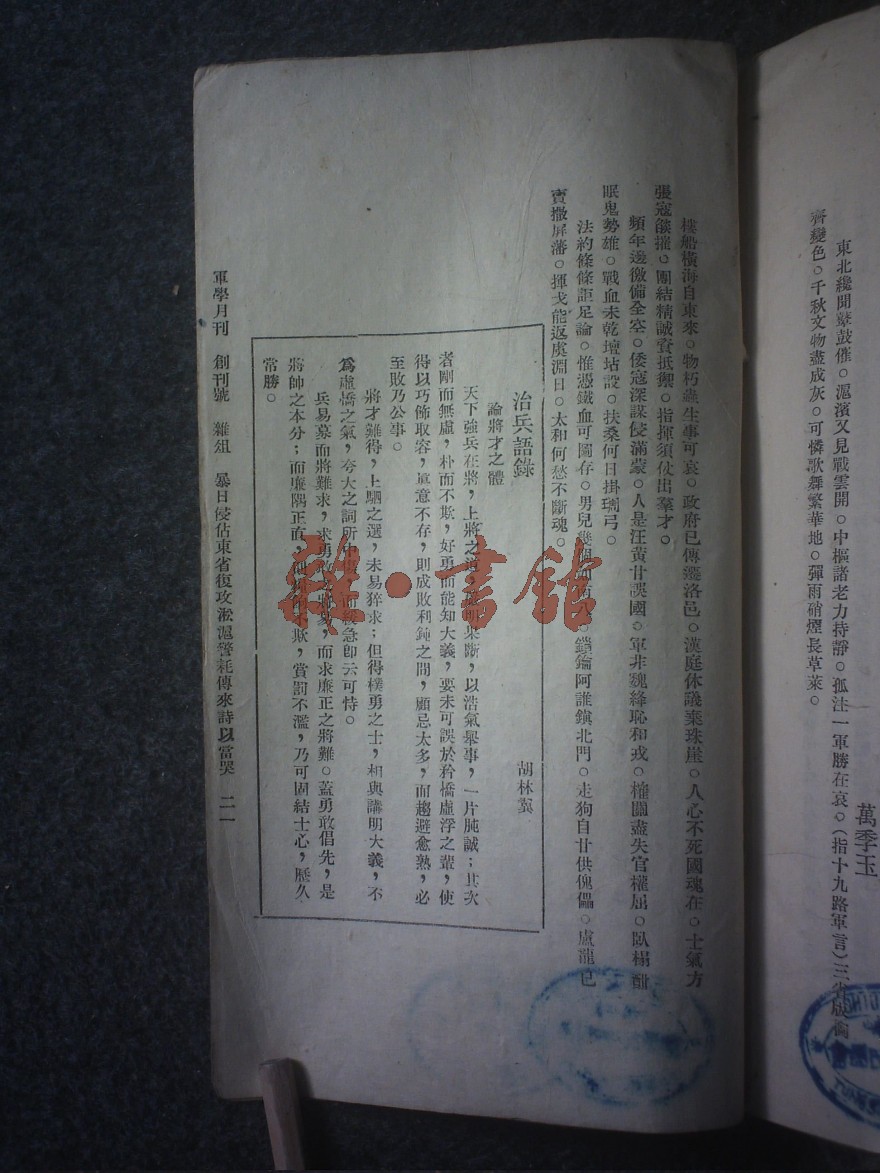 萬季玉
東北纔聞鼙鼓催。滬濱又見戰雲開。中樞諸老力持靜。孤注一軍勝在哀。(指十九路軍言)三省版圖
齊變色。千秋文物盡成灰。可憐歌舞繁華地。彈雨硝煙長草萊。
樓船橫海自東來。物朽蟲生事可哀。政府已傳遷洛邑。漢庭休議棄珠崖。人心不死國魂在。士氣方
張寇燄摧。團結精誠資抵禦。指揮須仗出羣才。
頻年邊徼備全空。倭寇深謀侵滿蒙。人是汪黃甘誤國。軍非魏絳恥和戎。權關盡失官權屈。臥榻酣
眠鬼勢雄。戰血未乾壇坫設。扶桑何日掛琱弓。
法約條條詎足論。惟憑鐵血可圖存。男兒幾個。鎖鑰阿誰鎮北門。走狗自甘供傀儡。盧龍已
賣撤屏藩。揮戈能返虞淵日。太和何愁不斷魂。
治兵語錄
論將才之體 胡林翼
天下強兵在將,上將之道,果斷,以浩氣舉事,一片肫誠;其次
者剛而無虛,朴而不欺,好勇而能知大義,要未可誤於矜憍虛浮之輩,使
得以巧佈取容,眞意不存,則成敗利鈍之間,顧忌太多,而趨避愈熟,必
至敗乃公事。
將才難得,上駟之選,未易猝求;但得樸勇之士,相與講明大義,不
爲虛憍之氣,夸大之詞所中,而緩急卽云可恃。
兵易募而將難求,求勇敢之將易,而求廉正之將難。蓋勇敢倡先,是
將帥之本分;而廉隅正直,不欺,賞罰不濫,乃可固結士心,歷久
常勝。
軍學月刊 創刊號 雜俎 暴日侵佔東省復攻淞滬警耗傳來詩以當哭 二一
雜·書館